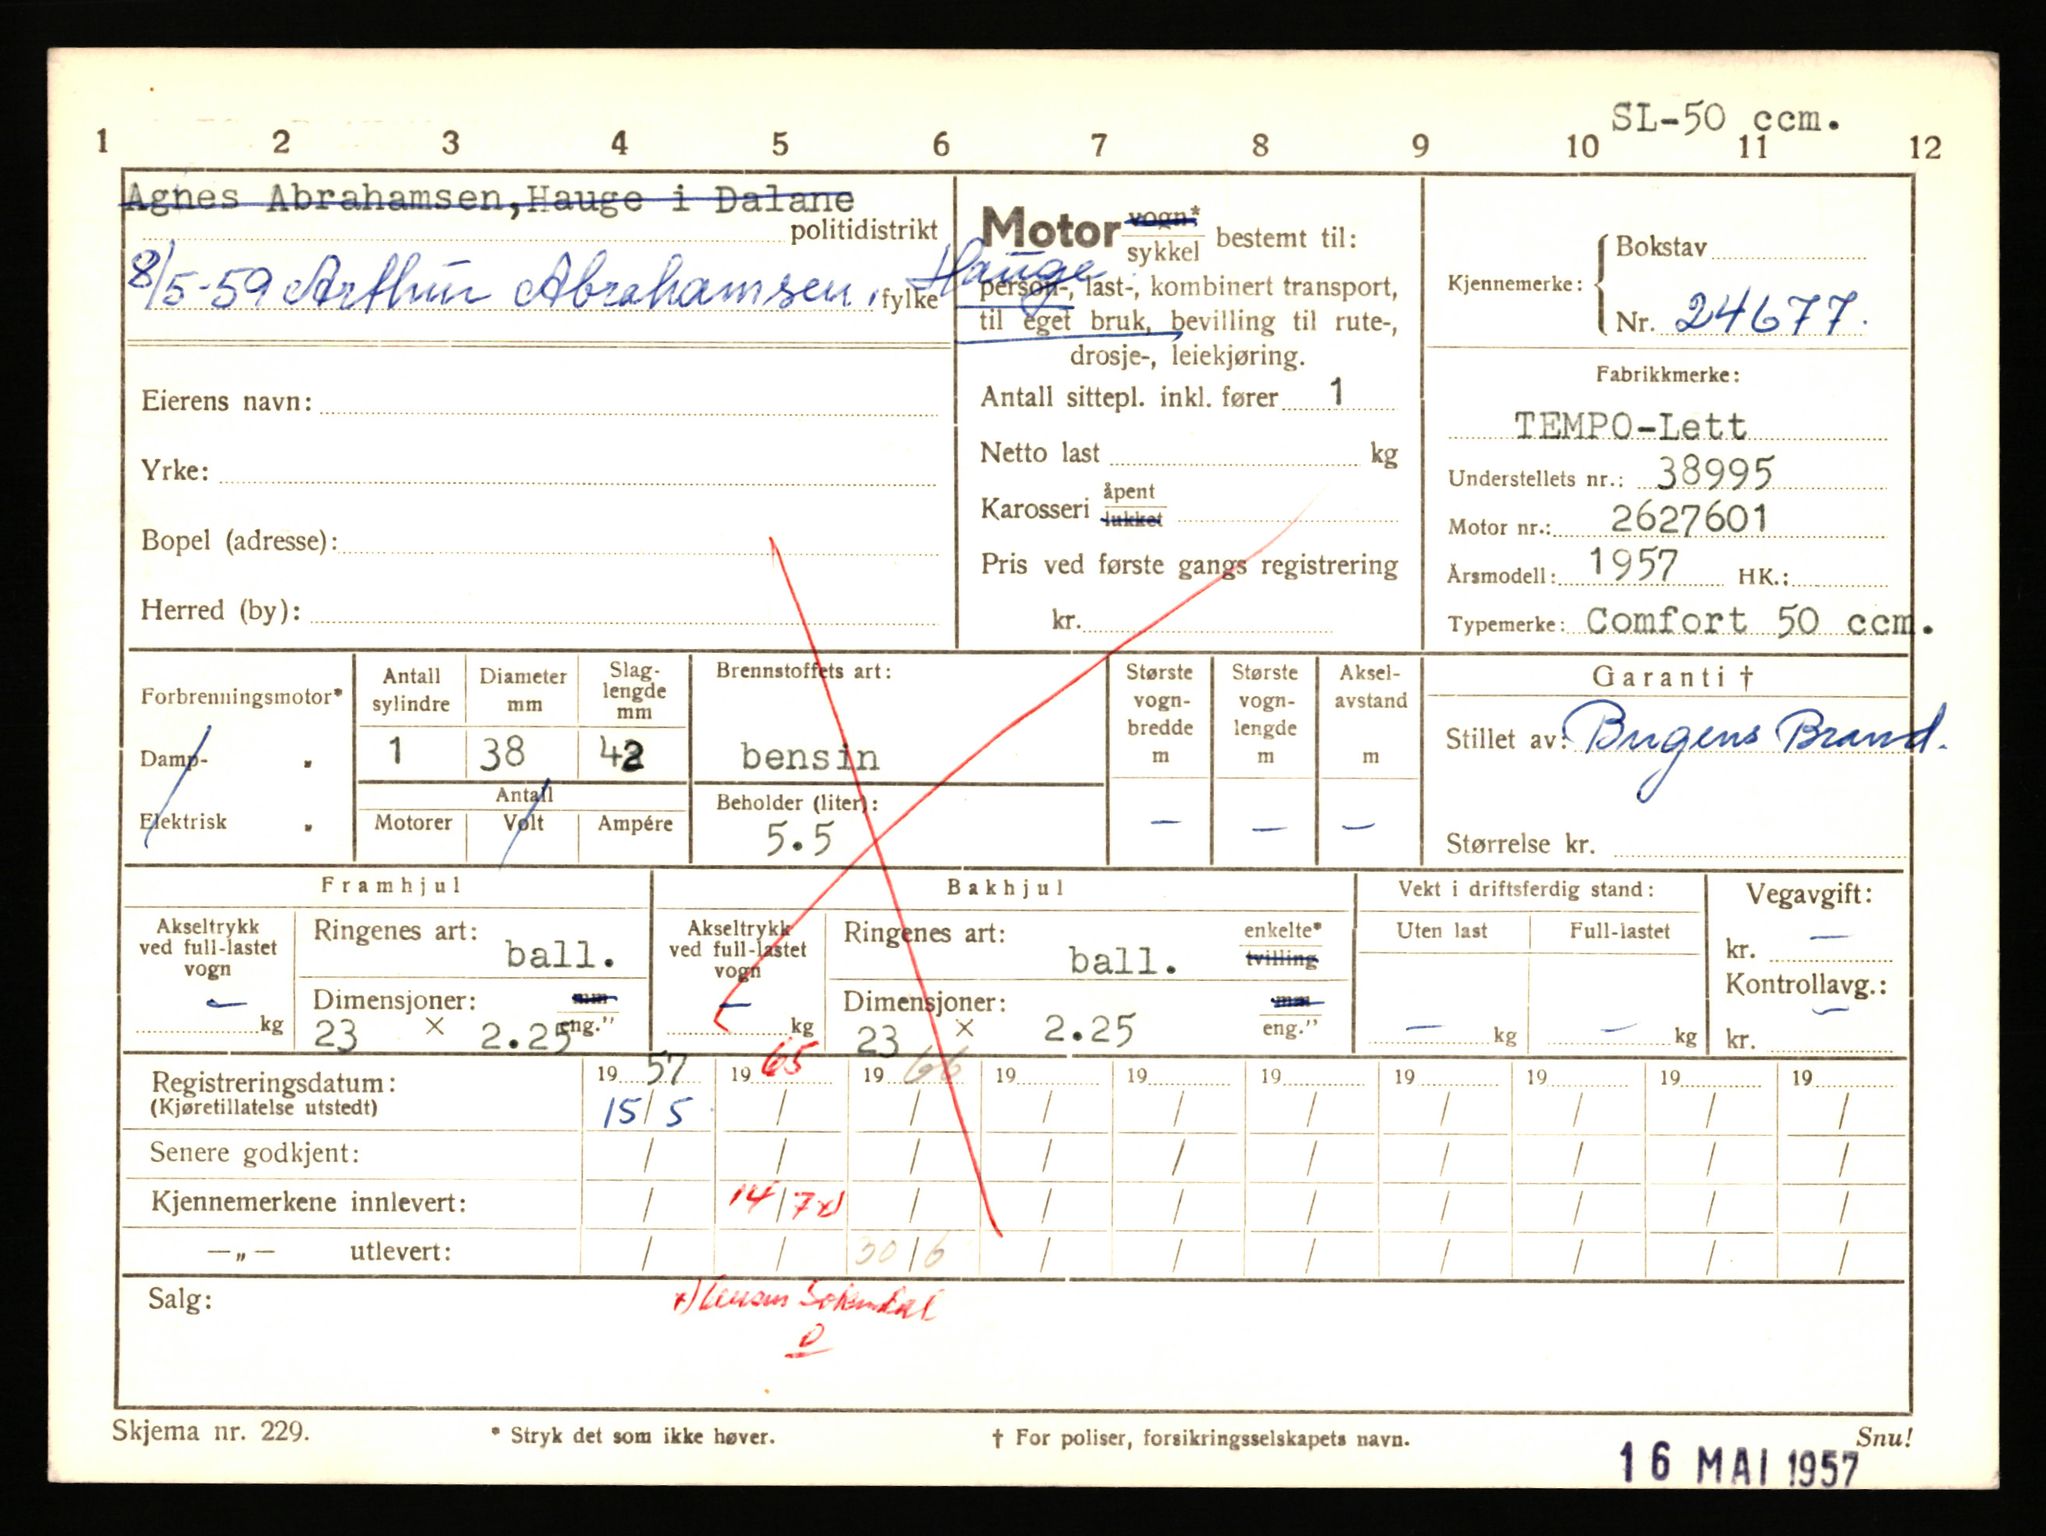 SL-50 ccm.
1 2 3 4 5 6 7 8 9 10 11 12
Agnes Abrahamsen, Hauge i Dalane
politidistrikt
8/5-59 Arthur Abrahamsen, Hauge
fylke
Eierens navn:
Yrke:
Bopel (adresse):
Herred (by):
Motor vogn* sykkel bestemt til:
person-, last-, kombinert transport,
til eget bruk, bevilling til rute-,
drosje-, leiekjøring.
Antall sittepl. inkl. fører 1
Netto last kg
Karosseri åpent lukket
Pris ved første gangs registrering
kr.
Kjennemerke:
Bokstav
Nr. 24677.
Fabrikkmerke:
TEMPO-Lett
Understellets nr.: 38995
Motor nr.: 2627601
Årsmodell: 1957 HK.:
Typemerke: Comfort 50 ccm.
Forbrenningsmotor*
Damp- "
Elektrisk "
Antall sylindre
1
Diameter mm
38
Slag-lengde mm
42
Antall
Motorer Volt Ampére
Brennstoffets art:
bensin
Beholder (liter):
5.5
Største vogn-bredde m
–
Største vogn-lengde m
–
Aksel-avstand m
–
Garanti †
Stillet av: Brand.
Størrelse kr.
Framhjul
Akseltrykk ved full-lastet vogn
– kg
Ringenes art: ball.
Dimensjoner: mm
23 × 2.25 eng."
Bakhjul
Akseltrykk ved full-lastet vogn
– kg
Ringenes art: ball.
enkelte* tvilling
Dimensjoner: mm
23 × 2.25 eng."
Vekt i driftsferdig stand:
Uten last Full-lastet
– kg – kg
Vegavgift:
kr. –
Kontrollavg.:
kr. –
Registreringsdatum: 1957 1965 1966 19 19 19 19 19 19 19
(Kjøretillatelse utstedt) 15/5 / / / / / / / / /
Senere godkjent: / / / / / / / / / /
Kjennemerkene innlevert: / 14/7 x) / / / / / / / /
—„— utlevert: / / 30/6 / / / / / / /
Salg:
x) Sokndal
Skjema nr. 229.
* Stryk det som ikke høver.
† For poliser, forsikringsselskapets navn.
Snu!
16 MAI 1957